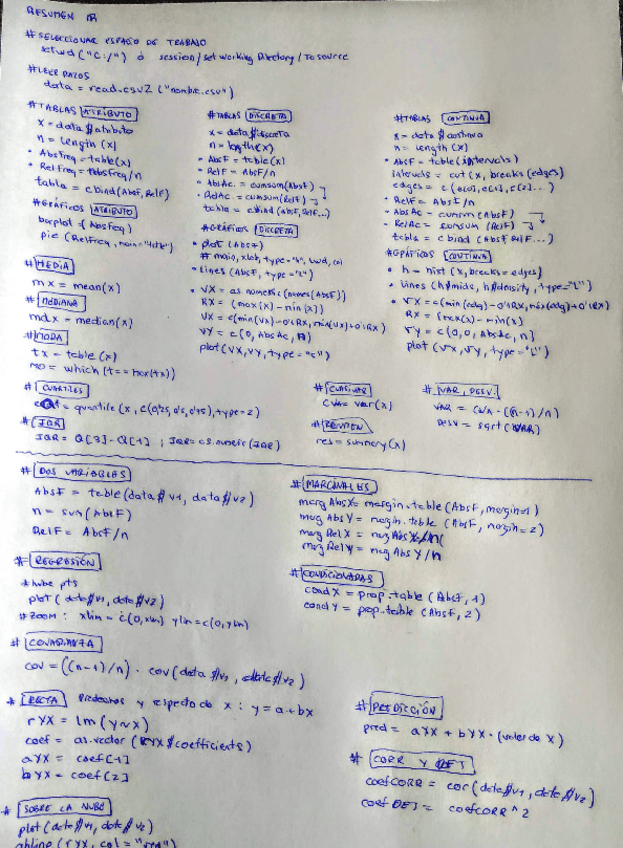 RESUMEN R
# SELECCIONAR ESPACIO DE TRABAJO
setwd("C:/") ó session/set working Directory/To source
# LEER DATOS
data = read.csv2("nombre.csv")
# TABLAS ATRIBUTO
x = data$atributo
n = length(x)
• AbsFreq = table(x)
• RelFreq = AbsFreq/n
tabla = cbind(AbsF, RelF)
# GRÁFICOS ATRIBUTO
barplot = (AbsFreq)
pie (RelFreq, main="title")
# MEDIA
mx = mean(x)
# MEDIANA
mdx = median(x)
# MODA
tx = table(x)
mo = which(t == max(tx))
# TABLAS DISCRETA
x = data$discreta
n = length(x)
• AbsF = table(x)
• RelF = AbsF/n
• AbsAc = cumsum(AbsF)
• RelAc = cumsum(RelF)
tabla = cbind(AbsF, RelF...)
# GRÁFICOS DISCRETA
• plot(AbsF)
# main, xlab, type="h", lwd, col
• lines(AbsF, type="l")
• VX = as.numeric(names(AbsF))
RX = (max(x) - min(x))
VX = c(min(vx)-0'1RX, max(vx)+0'1RX)
VY = c(0, AbsAc, n)
plot(VX, VY, type="s")
# TABLAS CONTINUA
x = data$continua
n = length(x)
• AbsF = table(intervals)
intervals = cut(x, breaks(edges)
edges = c(e[0], e[1], e[2]...)
• RelF = AbsF/n
• AbsAc = cumsum(AbsF)
• RelAc = cumsum(RelF)
tabla = cbind(AbsF, RelF...)
# GRÁFICOS CONTINUA
• h = hist(x, breaks=edges)
• lines(h$mids, h$density, type="l")
• VX = c(min(edg)-0'1RX, max(edg)+0'1RX)
RX = (max(x) - min(x))
VY = c(0, 0, AbsAc, n)
plot(VX, VY, type="l")
# CUARTILES
= quantile(x, c(0'25, 0'5, 0'75), type=2)
# IQR
IQR = Q[3]-Q[1] ; IQR = as.numeric(IQR)
# CUASIVAR
CVAR = var(x)
# RESUMEN
res = summary(x)
# VAR, DESV.
VAR = CVAR · ((n-1)/n)
DESV = sqrt(VAR)
# DOS VARIABLES
AbsF = table(data$v1, data$v2)
n = sum(AbsF)
RelF = AbsF/n
# MARGINALES
marg AbsX = margin.table(AbsF, margin=1)
marg AbsY = margin.table(AbsF, margin=2)
marg RelX = marg AbsX/n
marg RelY = marg AbsY/n
# REGRESIÓN
* nube pts
plot(data$v1, data$v2)
# ZOOM: xlim = c(0, xlim) ylim = c(0, ylim)
# CONDICIONADAS
condX = prop.table(AbsF, 1)
condY = prop.table(AbsF, 2)
# COVARIANZA
cov = ((n-1)/n) · cov(data$v1, data$v2)
* RECTA Predecimos y respecto de x: y = a+bx
rYX = lm(y~x)
coef = as.vector(RYX$coefficients)
aYX = coef[1]
bYX = coef[2]
# PREDICCIÓN
pred = aYX + bYX · (valor de X)
* CORR Y DET
coefCORR = cor(data$v1, data$v2)
coefDET = coefCORR^2
* SOBRE LA NUBE
plot(data$v1, data$v2)
abline(rYX, col="red")